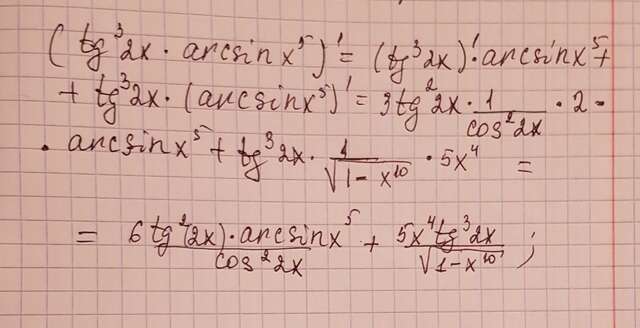 (tg³2x · arcsin x⁵)' = (tg³2x)' · arcsin x⁵ +
+ tg³2x · (arcsin x⁵)' = 3tg²2x · 1/cos²2x · 2 ·
· arcsin x⁵ + tg³2x · 1/√(1 - x¹⁰) · 5x⁴ =
= 6tg²(2x) · arcsin x⁵/cos²2x + 5x⁴tg³2x/√(1 - x¹⁰) ;